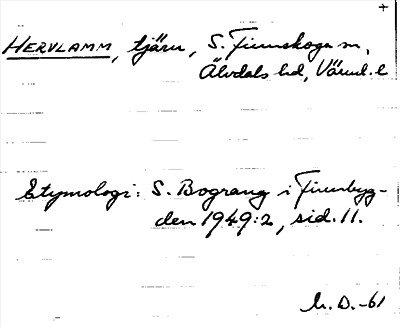 +
HERVLAMM, tjärn, S. Finnskoga sn,
Älvdals hd, Värml. l
Etymologi: S. Bograng i Finnbyg-
den 1949:2, sid. 11.
M. D. -61